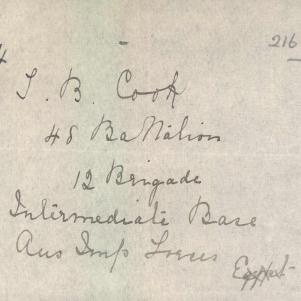 216
4
T. B. Cook
48 Battalion
12 Brigade
Intermediate Base
Aus Imp Forces
Egypt